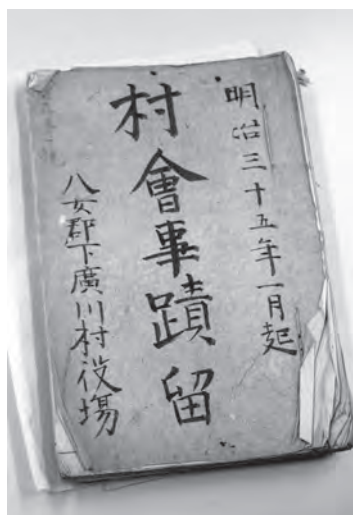 明治三十五年一月起
村會事蹟留
八女郡下廣川村役場